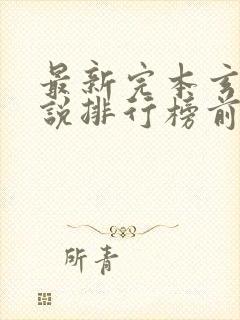 最新完本玄
说排行榜前
所青